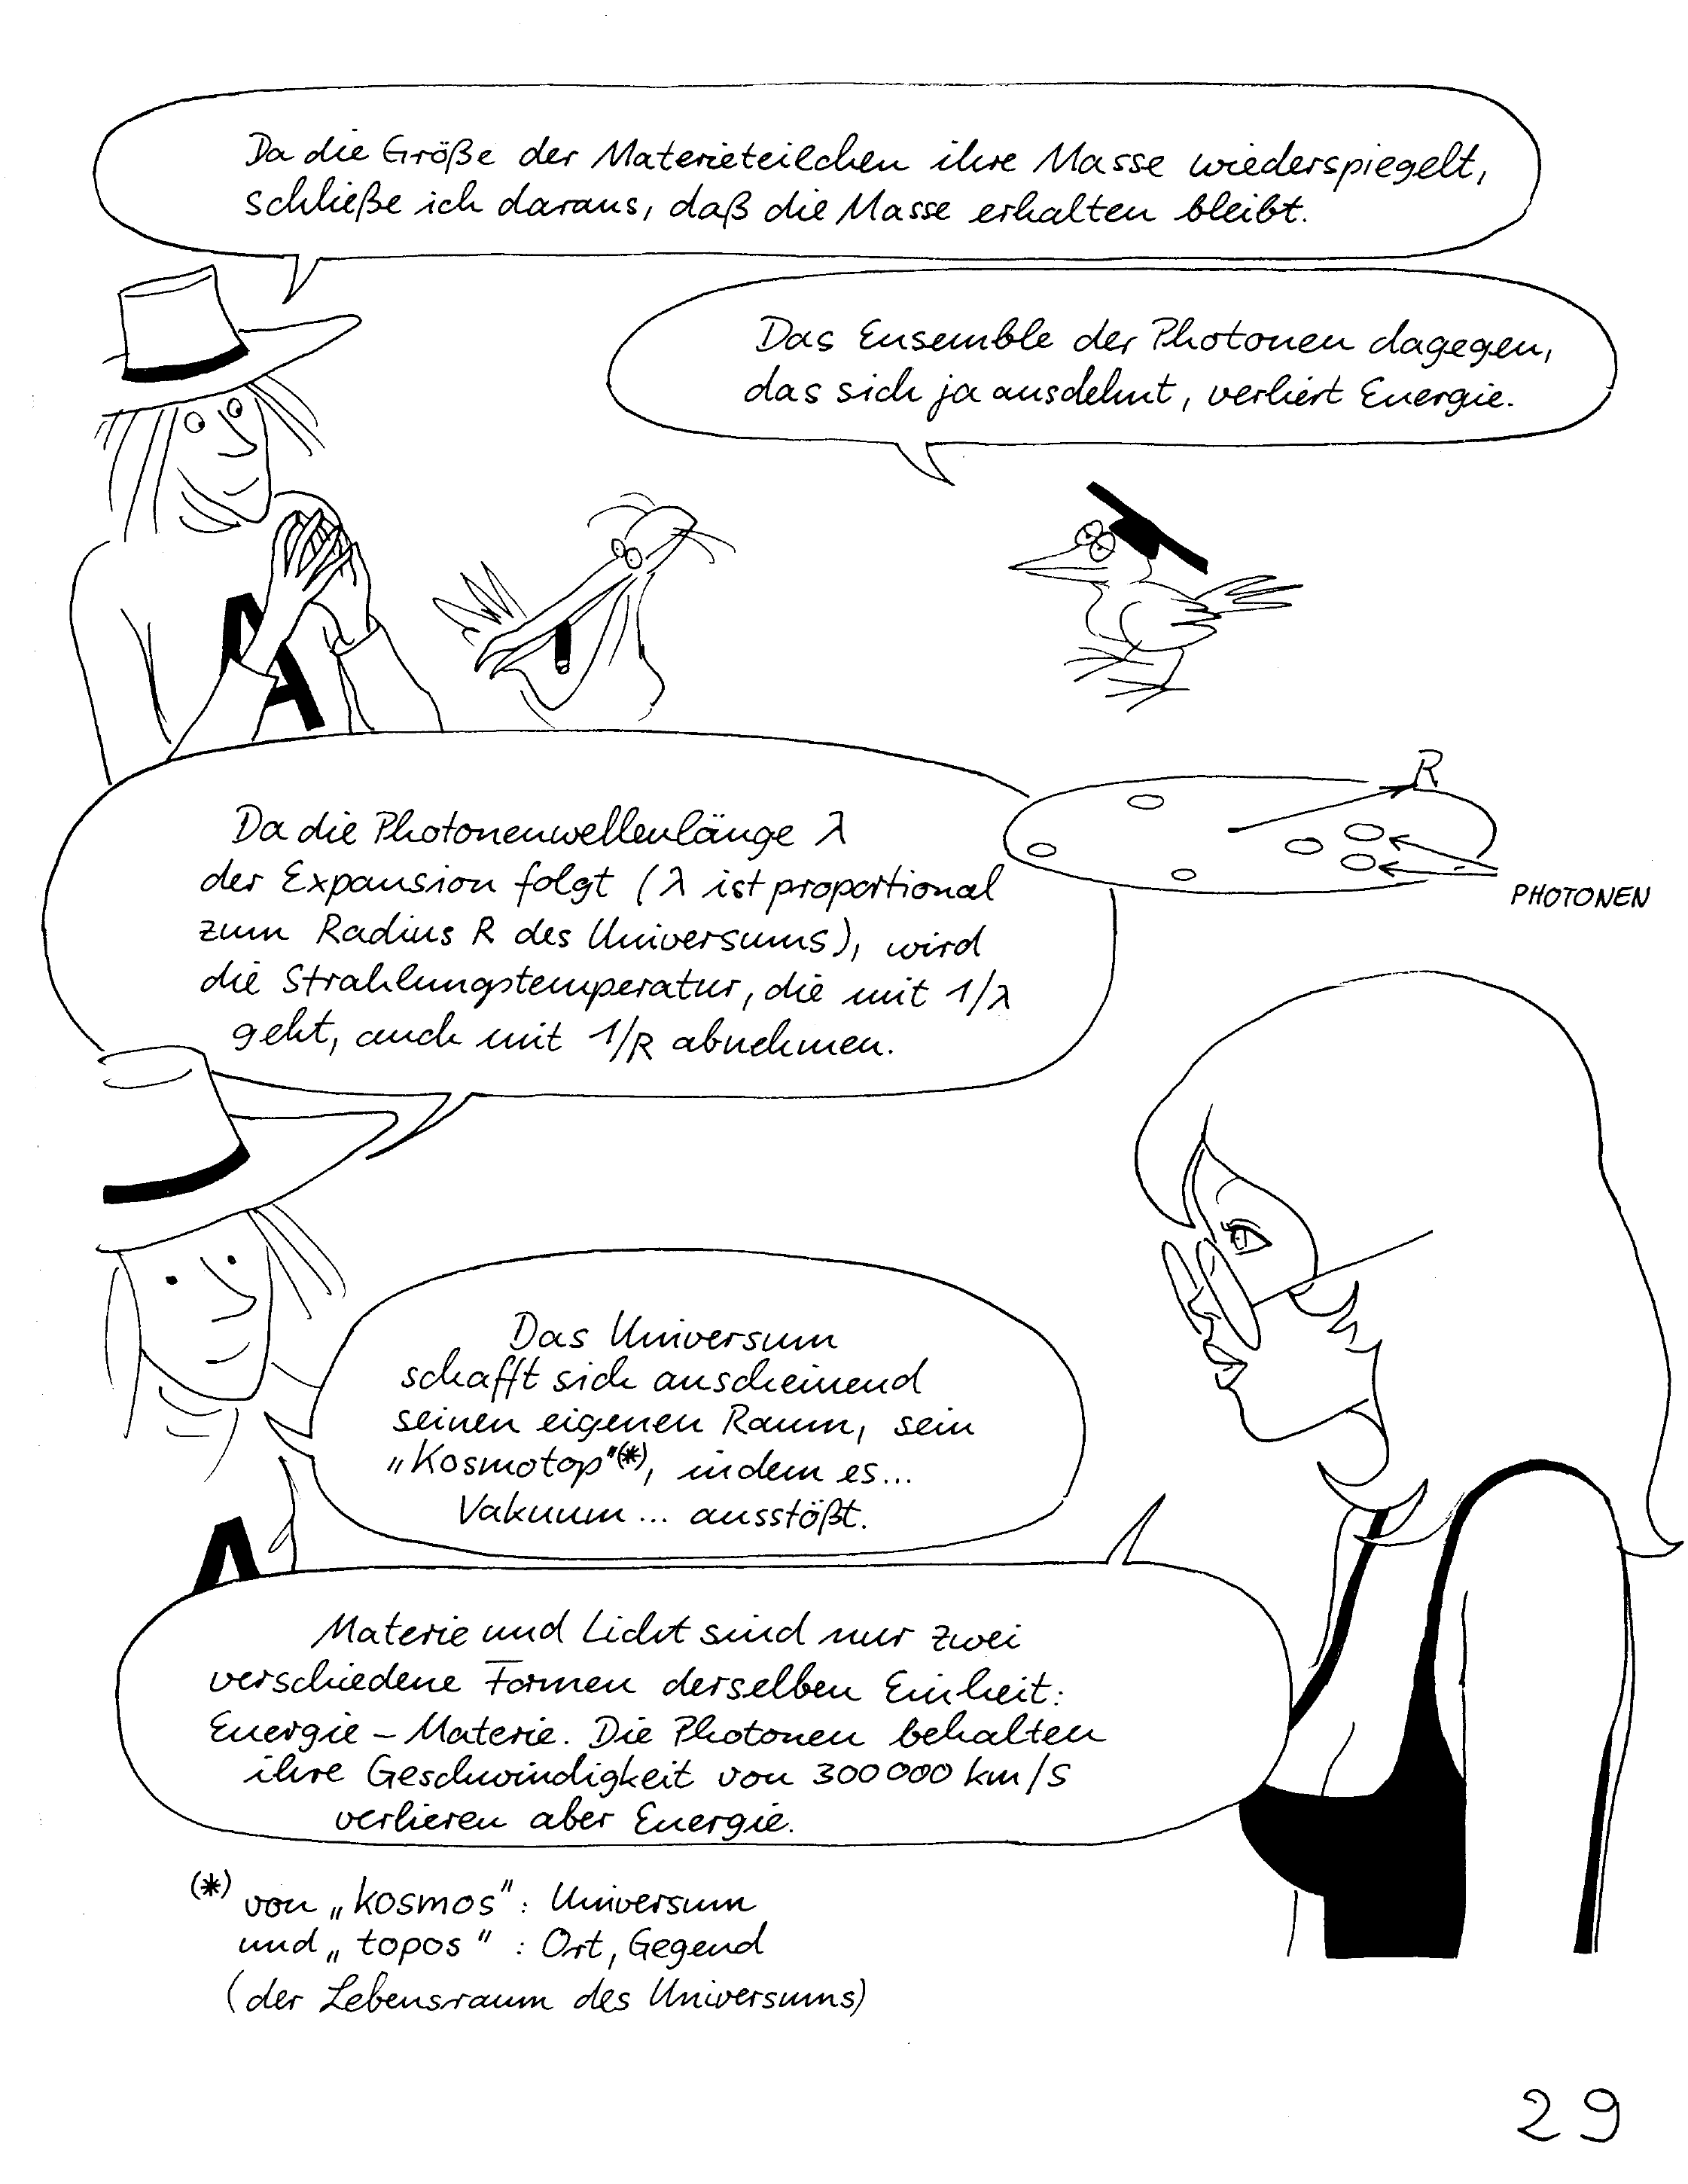 Da die Größe der Materieteilchen ihre Masse wiederspiegelt,
schließe ich daraus, daß die Masse erhalten bleibt.
Das Ensemble der Photonen dagegen,
das sich ja ausdehnt, verliert Energie.
R
PHOTONEN
Da die Photonenwellenlänge λ
der Expansion folgt (λ ist proportional
zum Radius R des Universums), wird
die Strahlungstemperatur, die mit 1/λ
geht, auch mit 1/R abnehmen.
Das Universum
schafft sich anscheinend
seinen eigenen Raum, sein
„Kosmotop"(*), indem es...
Vakuum... ausstößt.
A
A
Materie und Licht sind nur zwei
verschiedene Formen derselben Einheit:
Energie – Materie. Die Photonen behalten
ihre Geschwindigkeit von 300 000 km/s
verlieren aber Energie.
(*) von „kosmos": Universum
und „topos" : Ort, Gegend
(der Lebensraum des Universums)
29